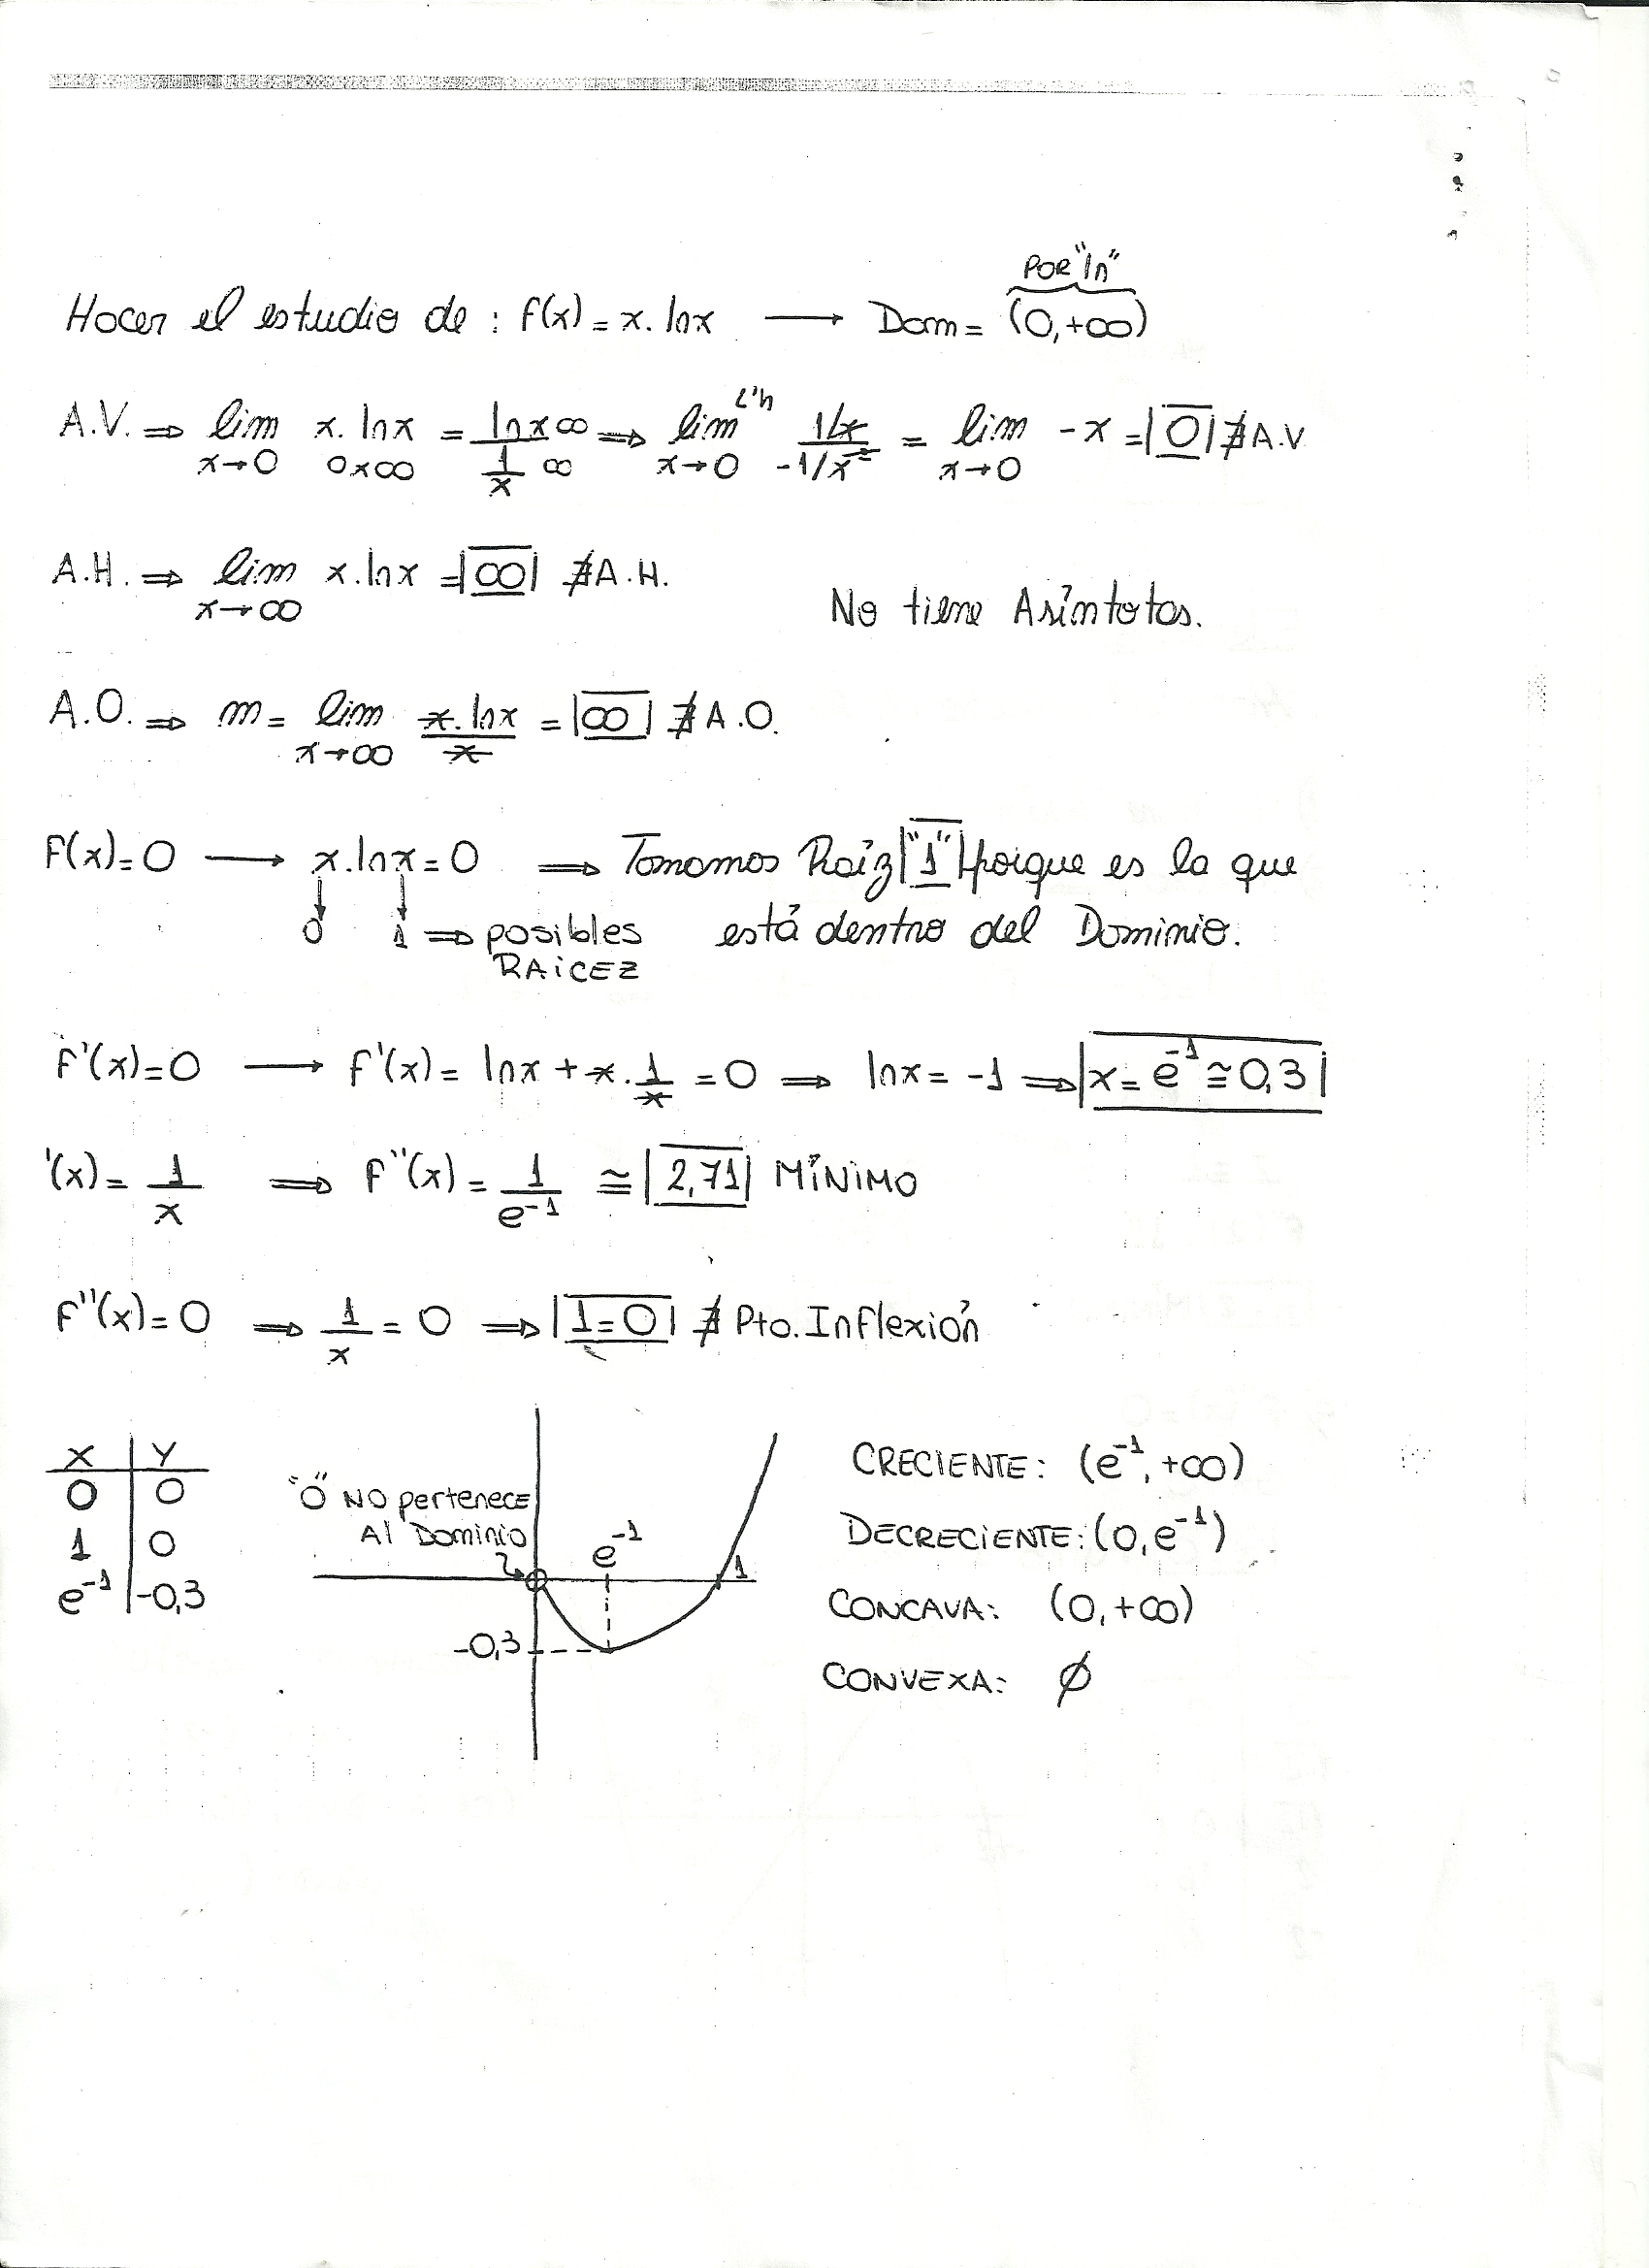 POR "ln"
Hacer el estudio de : f(x) = x. lnx ⟶ Dom = (0,+∞)
A.V. ⇒ lim x→0 x. lnx 0x∞ = lnx ∞ / 1/x ∞ ⇒ lim x→0 L'h 1/x / -1/x² = lim x→0 -x = |0| ∄ A.V
A.H. ⇒ lim x→∞ x.lnx = |∞| ∄ A.H.
No tiene Asíntotas.
A.O. ⇒ m = lim x→∞ x.lnx / x = |∞| ∄ A.O.
F(x)=0 ⟶ x.lnx=0 ⇒ Tomamos Raíz |"1"| porque es la que
0 1 ⇒ posibles está dentro del Dominio.
RAiCEZ
F'(x)=0 ⟶ F'(x)= lnx + x . 1/x = 0 ⇒ lnx = -1 ⇒ |x = e⁻¹ ≅ 0,3|
'(x) = 1/x ⇒ F''(x) = 1/e⁻¹ ≅ |2,71| MÍNIMO
F''(x)=0 ⇒ 1/x = 0 ⇒ |1=0| ∄ Pto. Inflexión
X | Y
0 | 0
1 | 0
e⁻¹ | -0,3
"0" NO pertenece
Al Dominio
e⁻¹
1
-0,3
CRECIENTE: (e⁻¹, +∞)
DECRECIENTE: (0, e⁻¹)
CONCAVA: (0, +∞)
CONVEXA: ∅